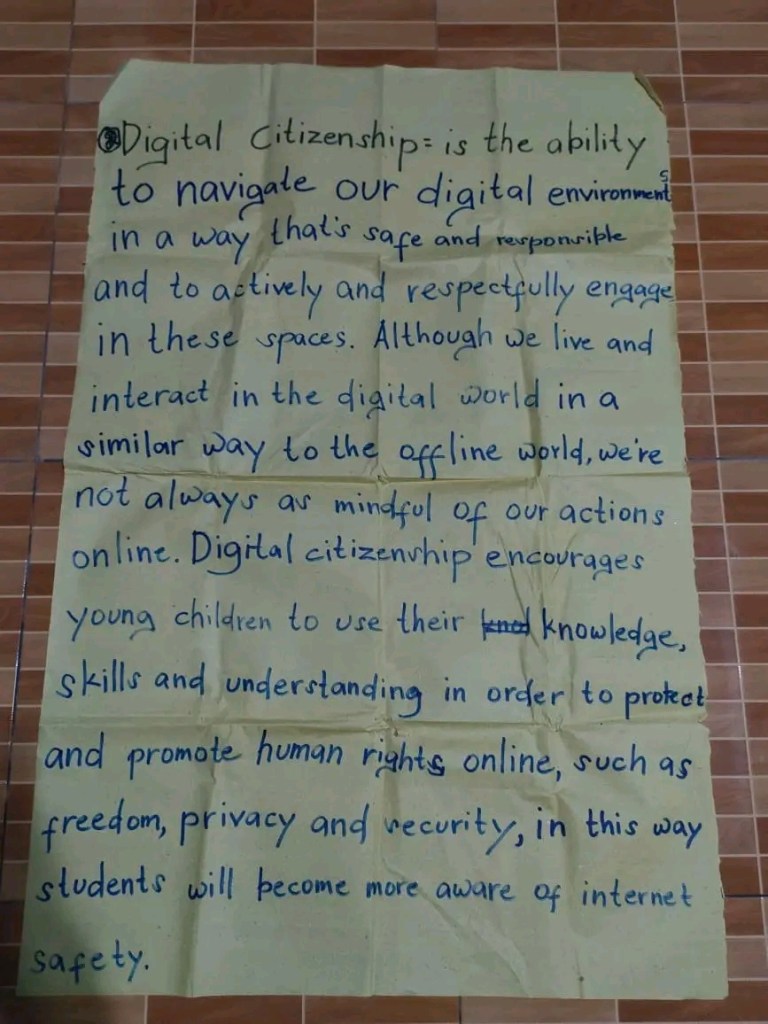 Digital Citizenship = is the ability
to navigate our digital environments
in a way that's safe and responsible
and to actively and respectfully engage
in these spaces. Although we live and
interact in the digital world in a
similar way to the offline world, we're
not always as mindful of our actions
online. Digital citizenship encourages
young children to use their knowledge,
skills and understanding in order to protect
and promote human rights online, such as
freedom, privacy and security, in this way
students will become more aware of internet
safety.